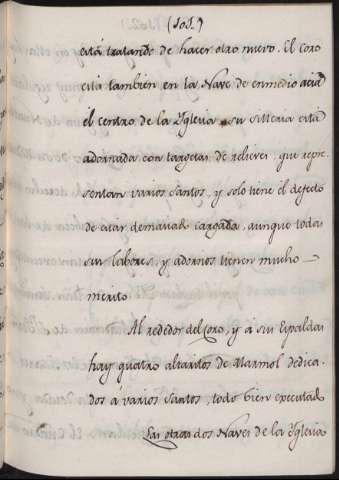 (101.)
está tratando de hacer otro nuevo. El Coro
está también en la Nave de enmedio acia
el centro de la Yglesia su silleria está
adornada con targetas de relieves, que repre
sentan varios Santos, y solo tiene el defecto
de estar demasiad cargada, aunque todas
sus labores, y adornos tienen mucho —
merito
Al rededor del Coro, y á sus Espaldas
hay quatro altaritos de Marmol dedica-
dos a varios Santos, todo bien executad
Las otras dos Naves de la Yglesia